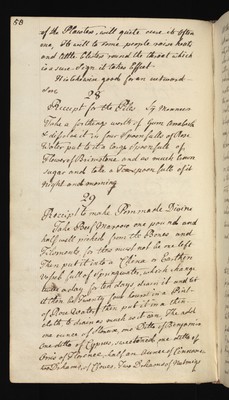 58
of the Plaister, will quite cure it often
use, It will to some people occasion heat
and little Blisters round the throat which
is a sure sign it takes Effect
Historkain good for an outward
Sore
28
Receipt for the Piles Ly Monnson
Take a farthings worth of Gum Arabeck
& disolve it in four Spoonfulls of Rose
Water put to it a large Spoonfull of
Flower of Brimstone and as much brown
sugar and take a Teaspoon full of it
Night and morning
29
Receipt to make Pommade Divine
Take Beef Marrow one pound and
half well picked from the Bones and
Filements for this must not be one left
Then put it into a China or Earthen
Vessel full of Springwater, which change
twice a day for ten days drain it and let
it then be Twenty four hours in a Pint
of Rose Water, then put it in a thin
cloth to drain as much as it can, Then add
one ounce of Storax, one Ditto of Benjamin
One ditto of Cyprus sweetened, one ditto of
Orris of Florence, half an Ounce of Cinnamon
two Drhams of Cloves, Two Drhams of Nutmegs